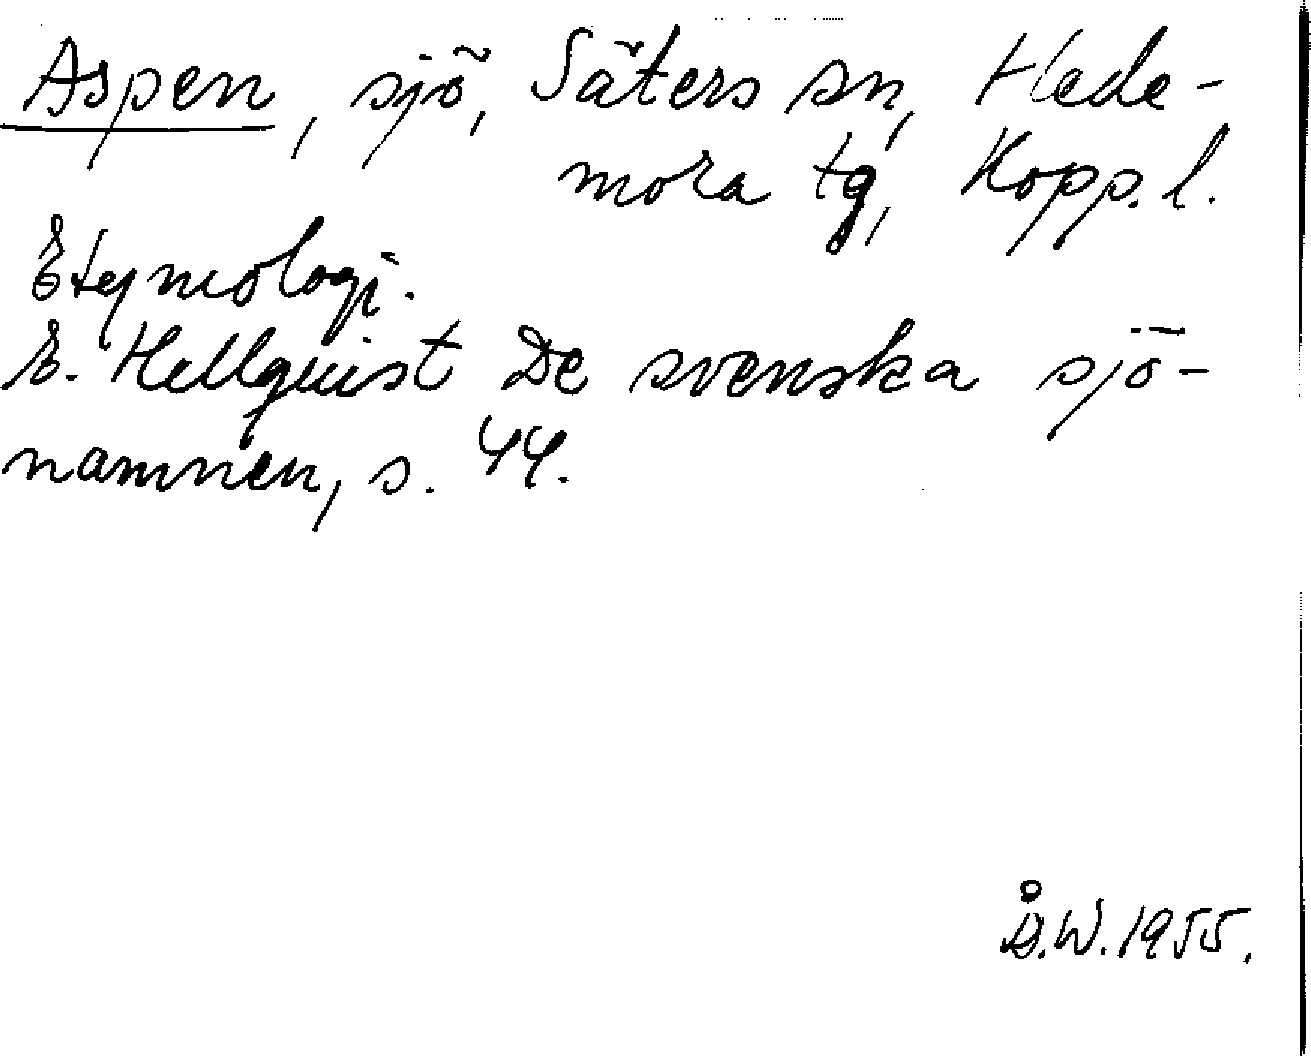 Aspen, sjö, Säters sn, Hede-
mora tg, Kopp. l.
Etymologi.
E. Hellquist De svenska sjö-
namnen, s. 44.
Å.W. 1955.